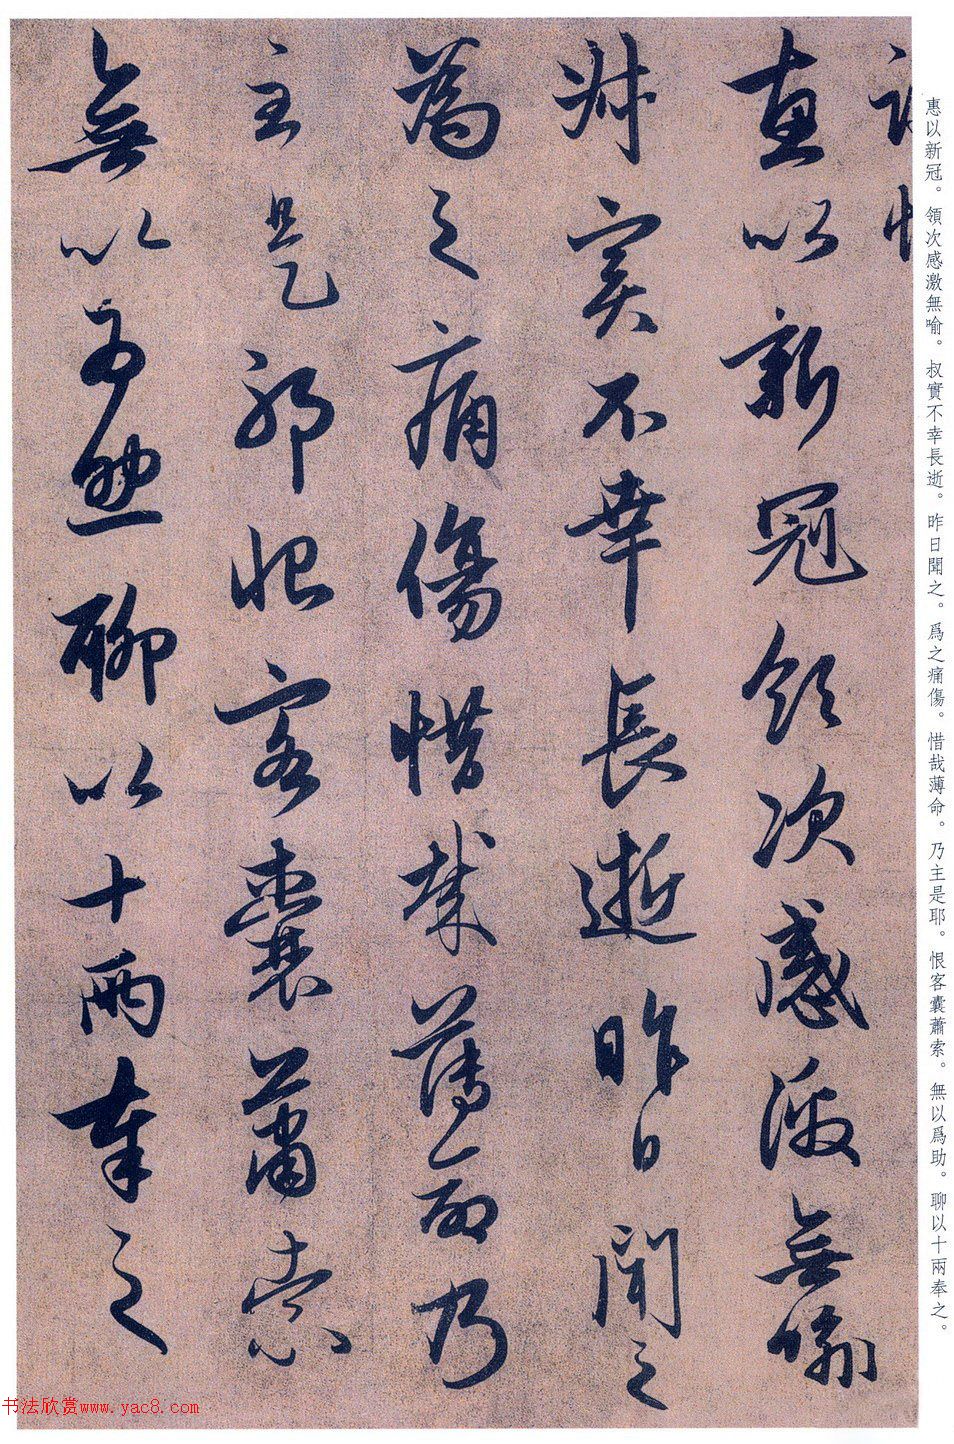 惠以新冠。領次感激無喻。叔實不幸長逝。昨日聞之。爲之痛傷。惜哉薄命。乃主是耶。恨客囊蕭索。無以爲助。聊以十兩奉之。
惠以新冠領次感激無喻
叔實不幸長逝昨日聞之
為之痛傷惜哉薄命乃
主是耶恨客囊蕭索
無以為助聊以十兩奉之
书法欣赏www.yac8.com